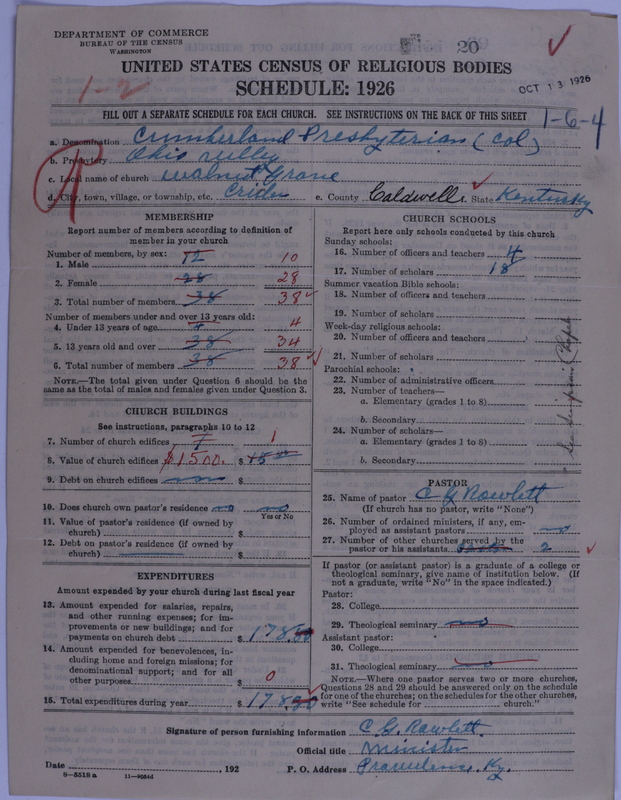 DEPARTMENT OF COMMERCE
BUREAU OF THE CENSUS
WASHINGTON
20
UNITED STATES CENSUS OF RELIGIOUS BODIES
SCHEDULE: 1926
OCT 13 1926
1-2
FILL OUT A SEPARATE SCHEDULE FOR EACH CHURCH. SEE INSTRUCTIONS ON THE BACK OF THIS SHEET
1-6-4
a. Denomination Cumberland Presbyterian (Col)
b. Presbytery Ohio vally
c. Local name of church Walnut Grove
d. City, town, village, or township, etc. Crider e. County Caldwell State Kentucky
MEMBERSHIP
Report number of members according to definition of
member in your church
Number of members, by sex:
1. Male 12 10
2. Female 28 28
3. Total number of members 38 38
Number of members under and over 13 years old:
4. Under 13 years of age 4
5. 13 years old and over 38 34
6. Total number of members 38 38
NOTE.—The total given under Question 6 should be the
same as the total of males and females given under Question 3.
CHURCH BUILDINGS
See instructions, paragraphs 10 to 12
7. Number of church edifices 1 1
8. Value of church edifices $1500. $ 15 00
9. Debt on church edifices $
10. Does church own pastor's residence no no
Yes or No
11. Value of pastor's residence (if owned by
church) $
12. Debt on pastor's residence (if owned by
church) $
EXPENDITURES
Amount expended by your church during last fiscal year
13. Amount expended for salaries, repairs,
and other running expenses; for im-
provements or new buildings; and for
payments on church debt $ 178.50
14. Amount expended for benevolences, in-
cluding home and foreign missions; for
denominational support; and for all
other purposes $ 0
15. Total expenditures during year $ 178.50
CHURCH SCHOOLS
Report here only schools conducted by this church
Sunday schools:
16. Number of officers and teachers 4
17. Number of scholars 18
Summer vacation Bible schools:
18. Number of officers and teachers
19. Number of scholars
Week-day religious schools:
20. Number of officers and teachers
21. Number of scholars
Parochial schools:
22. Number of administrative officers
23. Number of teachers—
a. Elementary (grades 1 to 8)
b. Secondary
24. Number of scholars—
a. Elementary (grades 1 to 8)
b. Secondary
See Simpsons Chapel
PASTOR
25. Name of pastor C G Rowlett
(If church has no pastor, write "None")
26. Number of ordained ministers, if any, em-
ployed as assistant pastors no
27. Number of other churches served by the
pastor or his assistants 2
If pastor (or assistant pastor) is a graduate of a college or
theological seminary, give name of institution below. (If
not a graduate, write "No" in the space indicated.)
Pastor:
28. College
29. Theological seminary no
Assistant pastor:
30. College
31. Theological seminary no
NOTE.—Where one pastor serves two or more churches,
Questions 28 and 29 should be answered only on the schedule
for one of the churches; on the schedules for the other churches,
write "See schedule for church."
Signature of person furnishing information C. G. Rowlett
Official title Minister
Date , 192 P. O. Address Providence, Ky.
8-5518 a